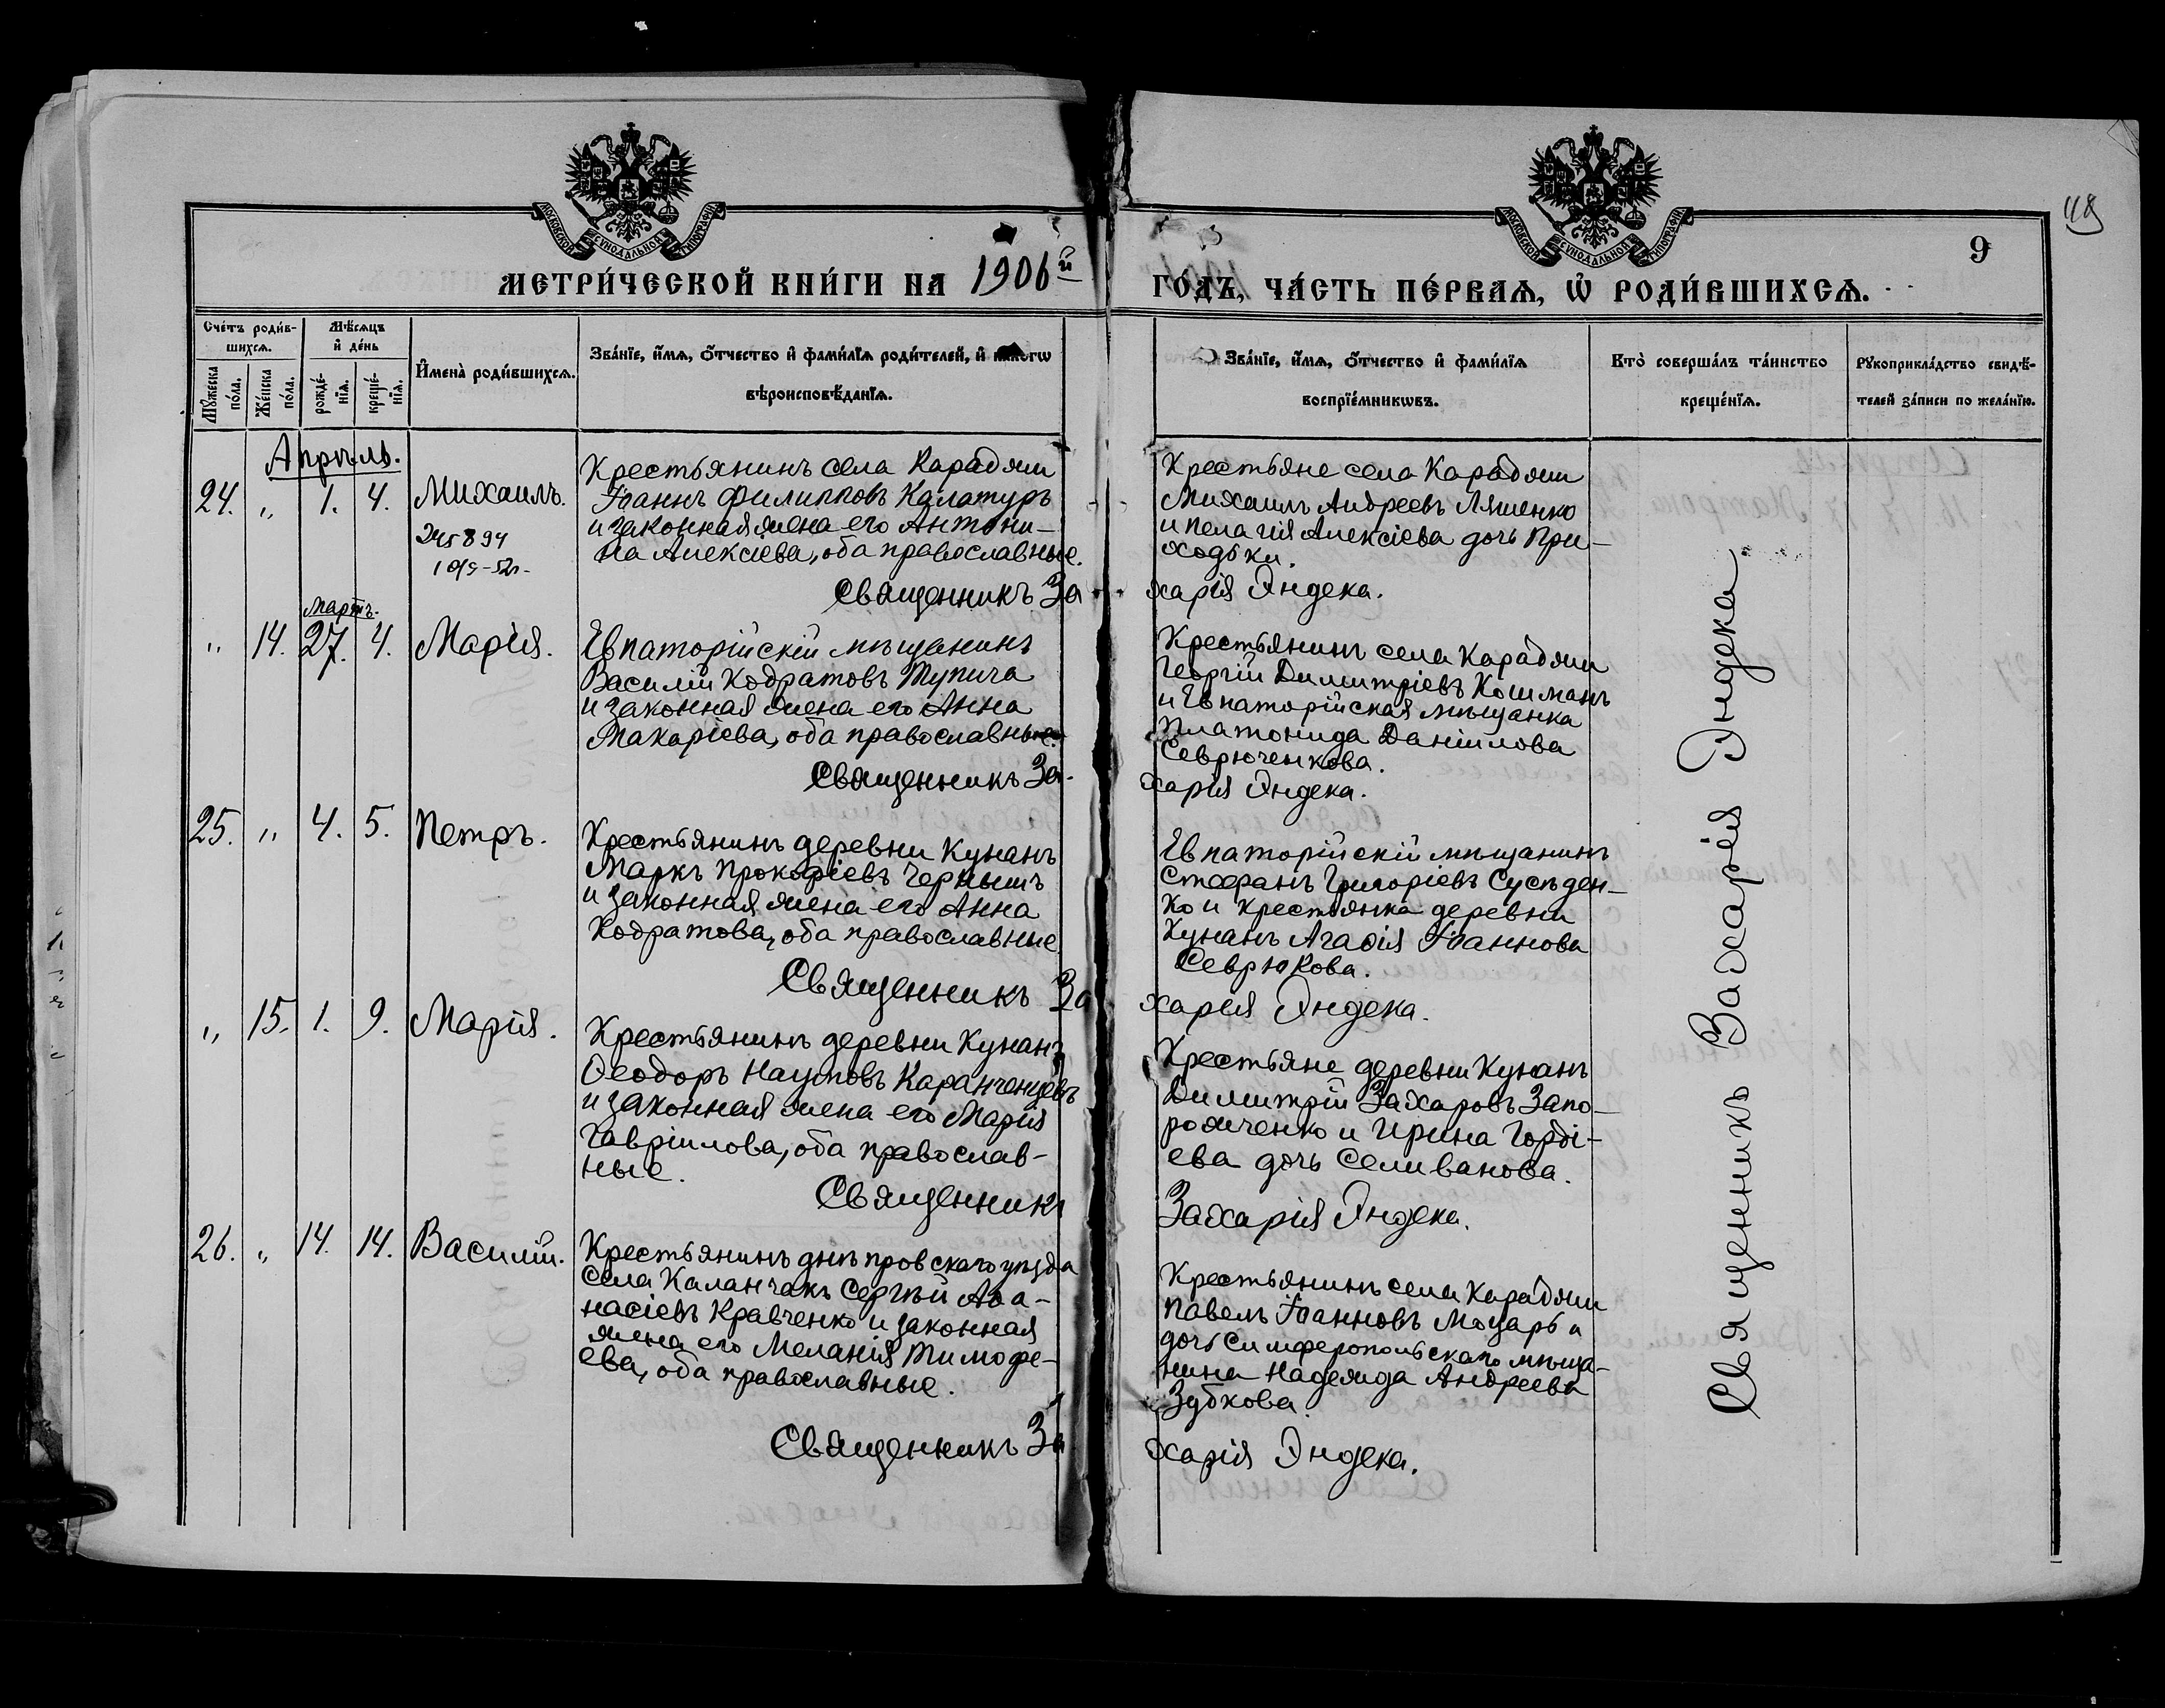 48
9
МОСКОВСКОЙ СѴНОДАЛЬНОЙ ТИПОГРАФІИ
МОСКОВСКОЙ СѴНОДАЛЬНОЙ ТИПОГРАФІИ
МЕТРИ́ЧЕСКОЙ КНИ́ГИ НА 1906й ГО́ДЪ, ЧА́СТЬ ПЕ́РВАѦ, Ѡ҆ РОДИ́ВШИХСѦ.
Сче́тъ роди́в-
шихсѧ.
Мꙋ́жеска по́ла.
Же́нска по́ла.
Мѣ́сѧцъ
и҆ де́нь
рожде́-
нїѧ.
креще́-
нїѧ.
И҆мена̀ роди́вшихсѧ.
Зва́нїе, и҆́мѧ, ѻ҆́тчество и҆ фами́лїѧ роди́телей, и҆
вѣроисповѣ́данїѧ.
Зва́нїе, и҆́мѧ, ѻ҆́тчество и҆ фами́лїѧ
воспрїе́мникѡвъ.
Кто̀ соверша́лъ та́инство
креще́нїѧ.
Рꙋкоприкла́дство свидѣ́-
телей за́писи по жела́нїю.
Апрѣль.
24. " 1. 4. Михаилъ.
245894
Крестьянинъ села Караджи
Іоаннъ Филипповъ Калатуръ
и законная жена его Антони-
на Алексіева, оба православные.
Крестьяне села Караджи
Михаилъ Андреевъ Ляшенко
и Пелагія Алексіева дочь При-
ходьки.
Священникъ Захарія Яндека.
Мартъ.
" 14. 27. 4. Марія.
Евпаторійскій мѣщанинъ
Василій Кодратовъ Тупича
и законная жена его Анна
Макаріева, оба православные.
Крестьянинъ села Караджи
Георгій Димитріевъ Кошманъ
и Евпаторійская мѣщанка
Платонида Даніилова
Севрюченкова.
Священникъ Захарія Яндека.
25. " 4. 5. Петръ.
Крестьянинъ деревни Кунанъ
Маркъ Прокофіевъ Чернышъ
и законная жена его Анна
Кодратова, оба православные
Евпаторійскій мѣщанинъ
Стефанъ Григоріевъ Сусѣден-
ко и крестьянка деревни
Кунанъ Агафія Іоаннова
Севрюкова.
Священникъ Захарія Яндека.
" 15. 1. 9. Марія.
Крестьянинъ деревни Кунанъ
Ѳеодоръ Наумовъ Каранченцевъ
и законная жена его Марія
Гавріилова, оба православ-
ные.
Крестьяне деревни Кунанъ
Димитрій Захаровъ Запо-
рожченко и Ирина Горді-
ева дочь Селиванова.
Священникъ Захарія Яндека.
26. " 14. 14. Василій.
Крестьянинъ днѣпровскаго уѣзда
села Каланчакъ Сергѣй Аѳа-
насіевъ Кравченко и законная
жена его Меланія Тимофе-
ева, оба православные.
Крестьянинъ села Караджи
Павелъ Іоанновъ Моцарь и
дочь Симферопольскаго мѣща-
нина Надежда Андреева
Зубкова.
Священникъ Захарія Яндека.
Священникъ Захарія Яндека